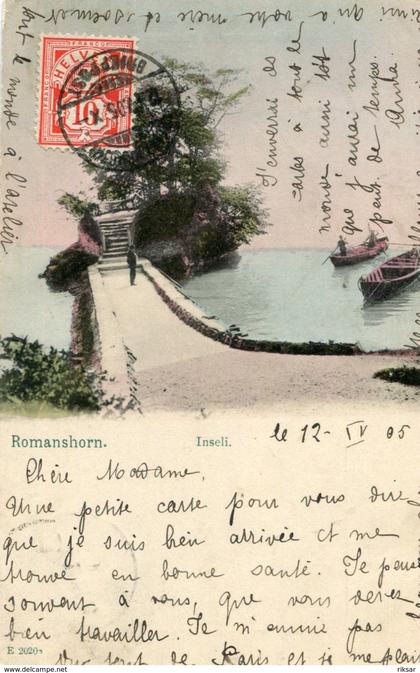 ami qu'à votre mère et souvenir
tout le monde à l'atelier
J'enverrai des
cartes à tout le
monde aussi tôt
que j'aurai un
peu de temps.
Anna
HELVETIA
FRANCO
10
Romanshorn. Inseli.
le 12- IV 05
Chère Madame,
Une petite carte pour vous dire
que je suis bien arrivée et me
trouve en bonne santé. Je pense
souvent à vous, que vous devez
bien travailler. Je m'ennuie pas
du tout de Paris et je me plais
E 2020
riksar